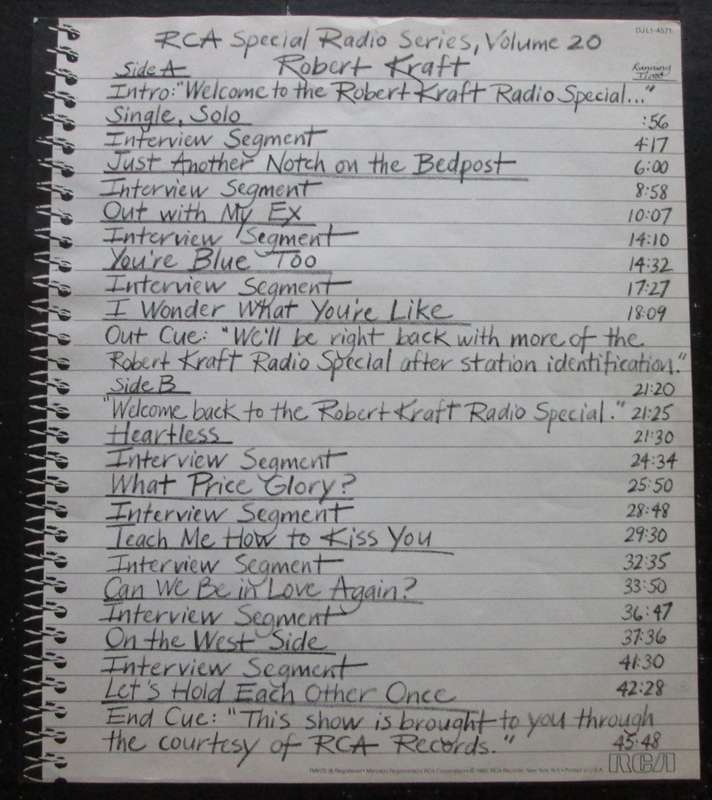 DJL1-4571
RCA Special Radio Series, Volume 20
Side A Robert Kraft Running Time
Intro: "Welcome to the Robert Kraft Radio Special..."
Single, Solo :56
Interview Segment 4:17
Just Another Notch on the Bedpost 6:00
Interview Segment 8:58
Out with My Ex 10:07
Interview Segment 14:10
You're Blue Too 14:32
Interview Segment 17:27
I Wonder What You're Like 18:09
Out Cue: "We'll be right back with more of the
Robert Kraft Radio Special after station identification."
Side B 21:20
"Welcome back to the Robert Kraft Radio Special." 21:25
Heartless 21:30
Interview Segment 24:34
What Price Glory? 25:50
Interview Segment 28:48
Teach Me How to Kiss You 29:30
Interview Segment 32:35
Can We Be in Love Again? 33:50
Interview Segment 36:47
On the West Side 37:36
Interview Segment 41:30
Let's Hold Each Other Once 42:28
End Cue: "This show is brought to you through
the courtesy of RCA Records." 45:48
RCA